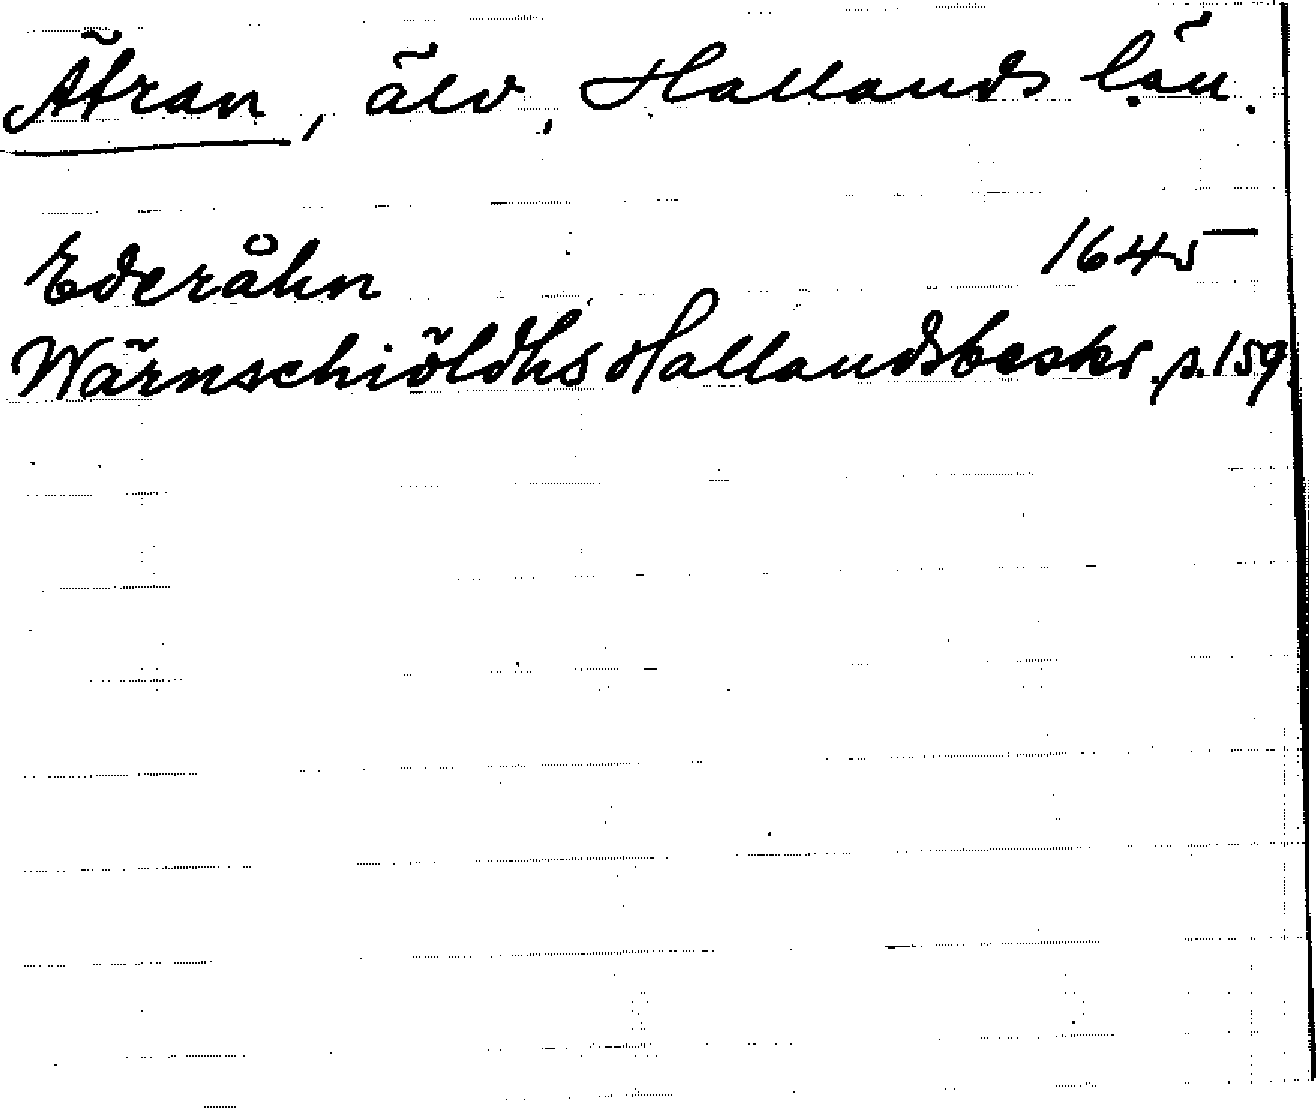 Ätran, älv, Hallands län.
Ederåhn 1645
Wärnschiöldhs Hallandsbeskr. p. 159